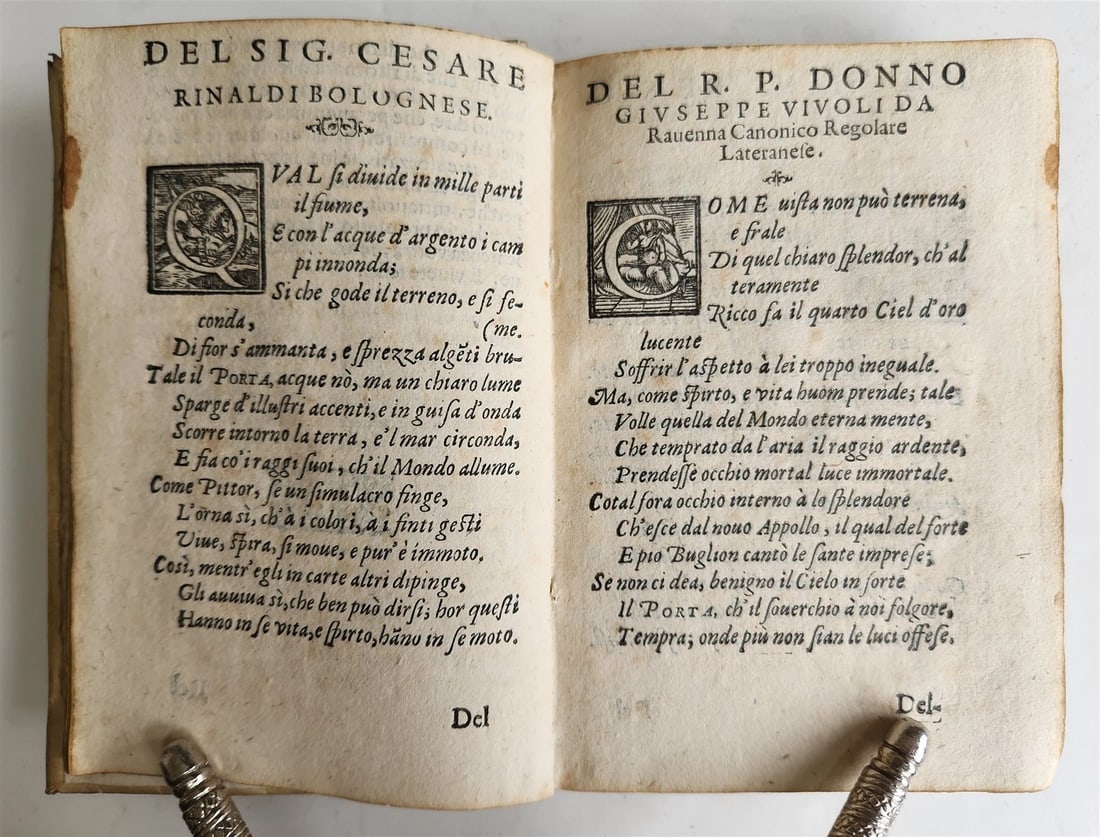 DEL SIG. CESARE
RINALDI BOLOGNESE.
QVAL ſi diuide in mille parti
il fiume,
E con l'acque d'argento i cam
pi innonda;
Si che gode il terreno, e ſi fe-
conda,
(me.
Di fior s'ammanta, e ſprezza algẽti bru-
Tale il PORTA, acque nò, ma un chiaro lume
Sparge d'illuſtri accenti, e in guiſa d'onda
Scorre intorno la terra, e'l mar circonda,
E fia co' i raggi ſuoi, ch'il Mondo allume.
Come Pittor, ſe un ſimulacro finge,
L'orna sì, ch'à i colori, à i finti geſti
Viue, ſpira, ſi moue, e pur'è immoto.
Così, mentr'egli in carte altri dipinge,
Gli auuiua sì, che ben può dirſi; hor queſti
Hanno in ſe vita, e ſpirto, hãno in ſe moto.
Del
DEL R. P. DONNO
GIVSEPPE VIVOLI DA
Rauenna Canonico Regolare
Lateraneſe.
COME uiſta non può terrena,
e frale
Di quel chiaro ſplendor, ch'al
teramente
Ricco fa il quarto Ciel d'oro
lucente
Soffrir l'aſpetto à lei troppo ineguale.
Ma, come ſpirto, e vita huom prende; tale
Volle quella del Mondo eterna mente,
Che temprato da l'aria il raggio ardente,
Prendeſſe occhio mortal luce immortale.
Cotal fora occhio interno à lo ſplendore
Ch'eſce dal nouo Appollo, il qual del forte
E pio Buglion cantò le ſante impreſe;
Se non ci dea, benigno il Cielo in ſorte
Il PORTA, ch'il ſouerchio à noi folgore,
Tempra; onde più non ſian le luci offeſe.
Del-